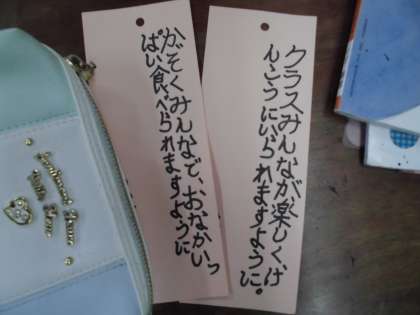 クラスみんなが楽しく、け
んこうにいられますように。
かぞくみんなで、おなかいっ
ぱい食べられますように